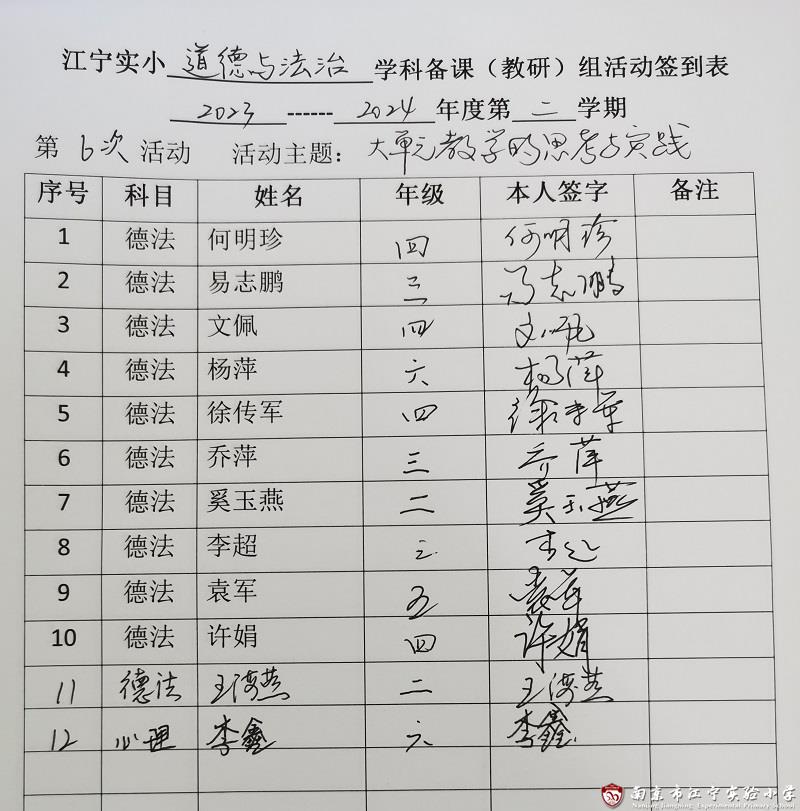 江宁实小 道德与法治 学科备课（教研）组活动签到表
2023 ------ 2024 年度第 二 学期
第 6次 活动 活动主题：大单元教学的思考与实践
序号 科目 姓名 年级 本人签字 备注
1 德法 何明珍 四 何明珍
2 德法 易志鹏 三 易志鹏
3 德法 文佩 四 文佩
4 德法 杨萍 六 杨萍
5 德法 徐传军 四 徐传军
6 德法 乔萍 三 乔萍
7 德法 奚玉燕 二 奚玉燕
8 德法 李超 三 李超
9 德法 袁军 五 袁军
10 德法 许娟 四 许娟
11 德法 王海燕 二 王海燕
12 心理 李鑫 六 李鑫
南京市江宁实验小学
Nanjing Jiangning Experimental Primary School